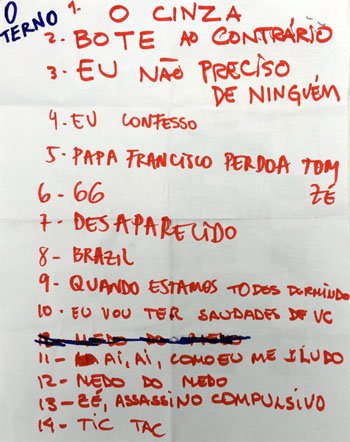 O TERNO
1. O CINZA
2. BOTE AO CONTRÁRIO
3. EU NÃO PRECISO
DE NINGUÉM
4. EU CONFESSO
5. PAPA FRANCISCO PERDOA TOM
ZÉ
6 - 66
7 - DESAPARECIDO
8 - BRAZIL
9 - QUANDO ESTAMOS TODOS DORMINDO
10. EU VOU TER SAUDADES DE VC
11 - AI, AI, COMO EU ME ILUDO
12 - MEDO DO MEDO
13 - ZÉ, ASSASSINO COMPULSIVO
14 - TIC TAC